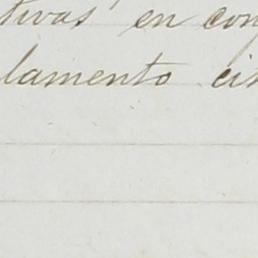 tivas en con
lamento cis